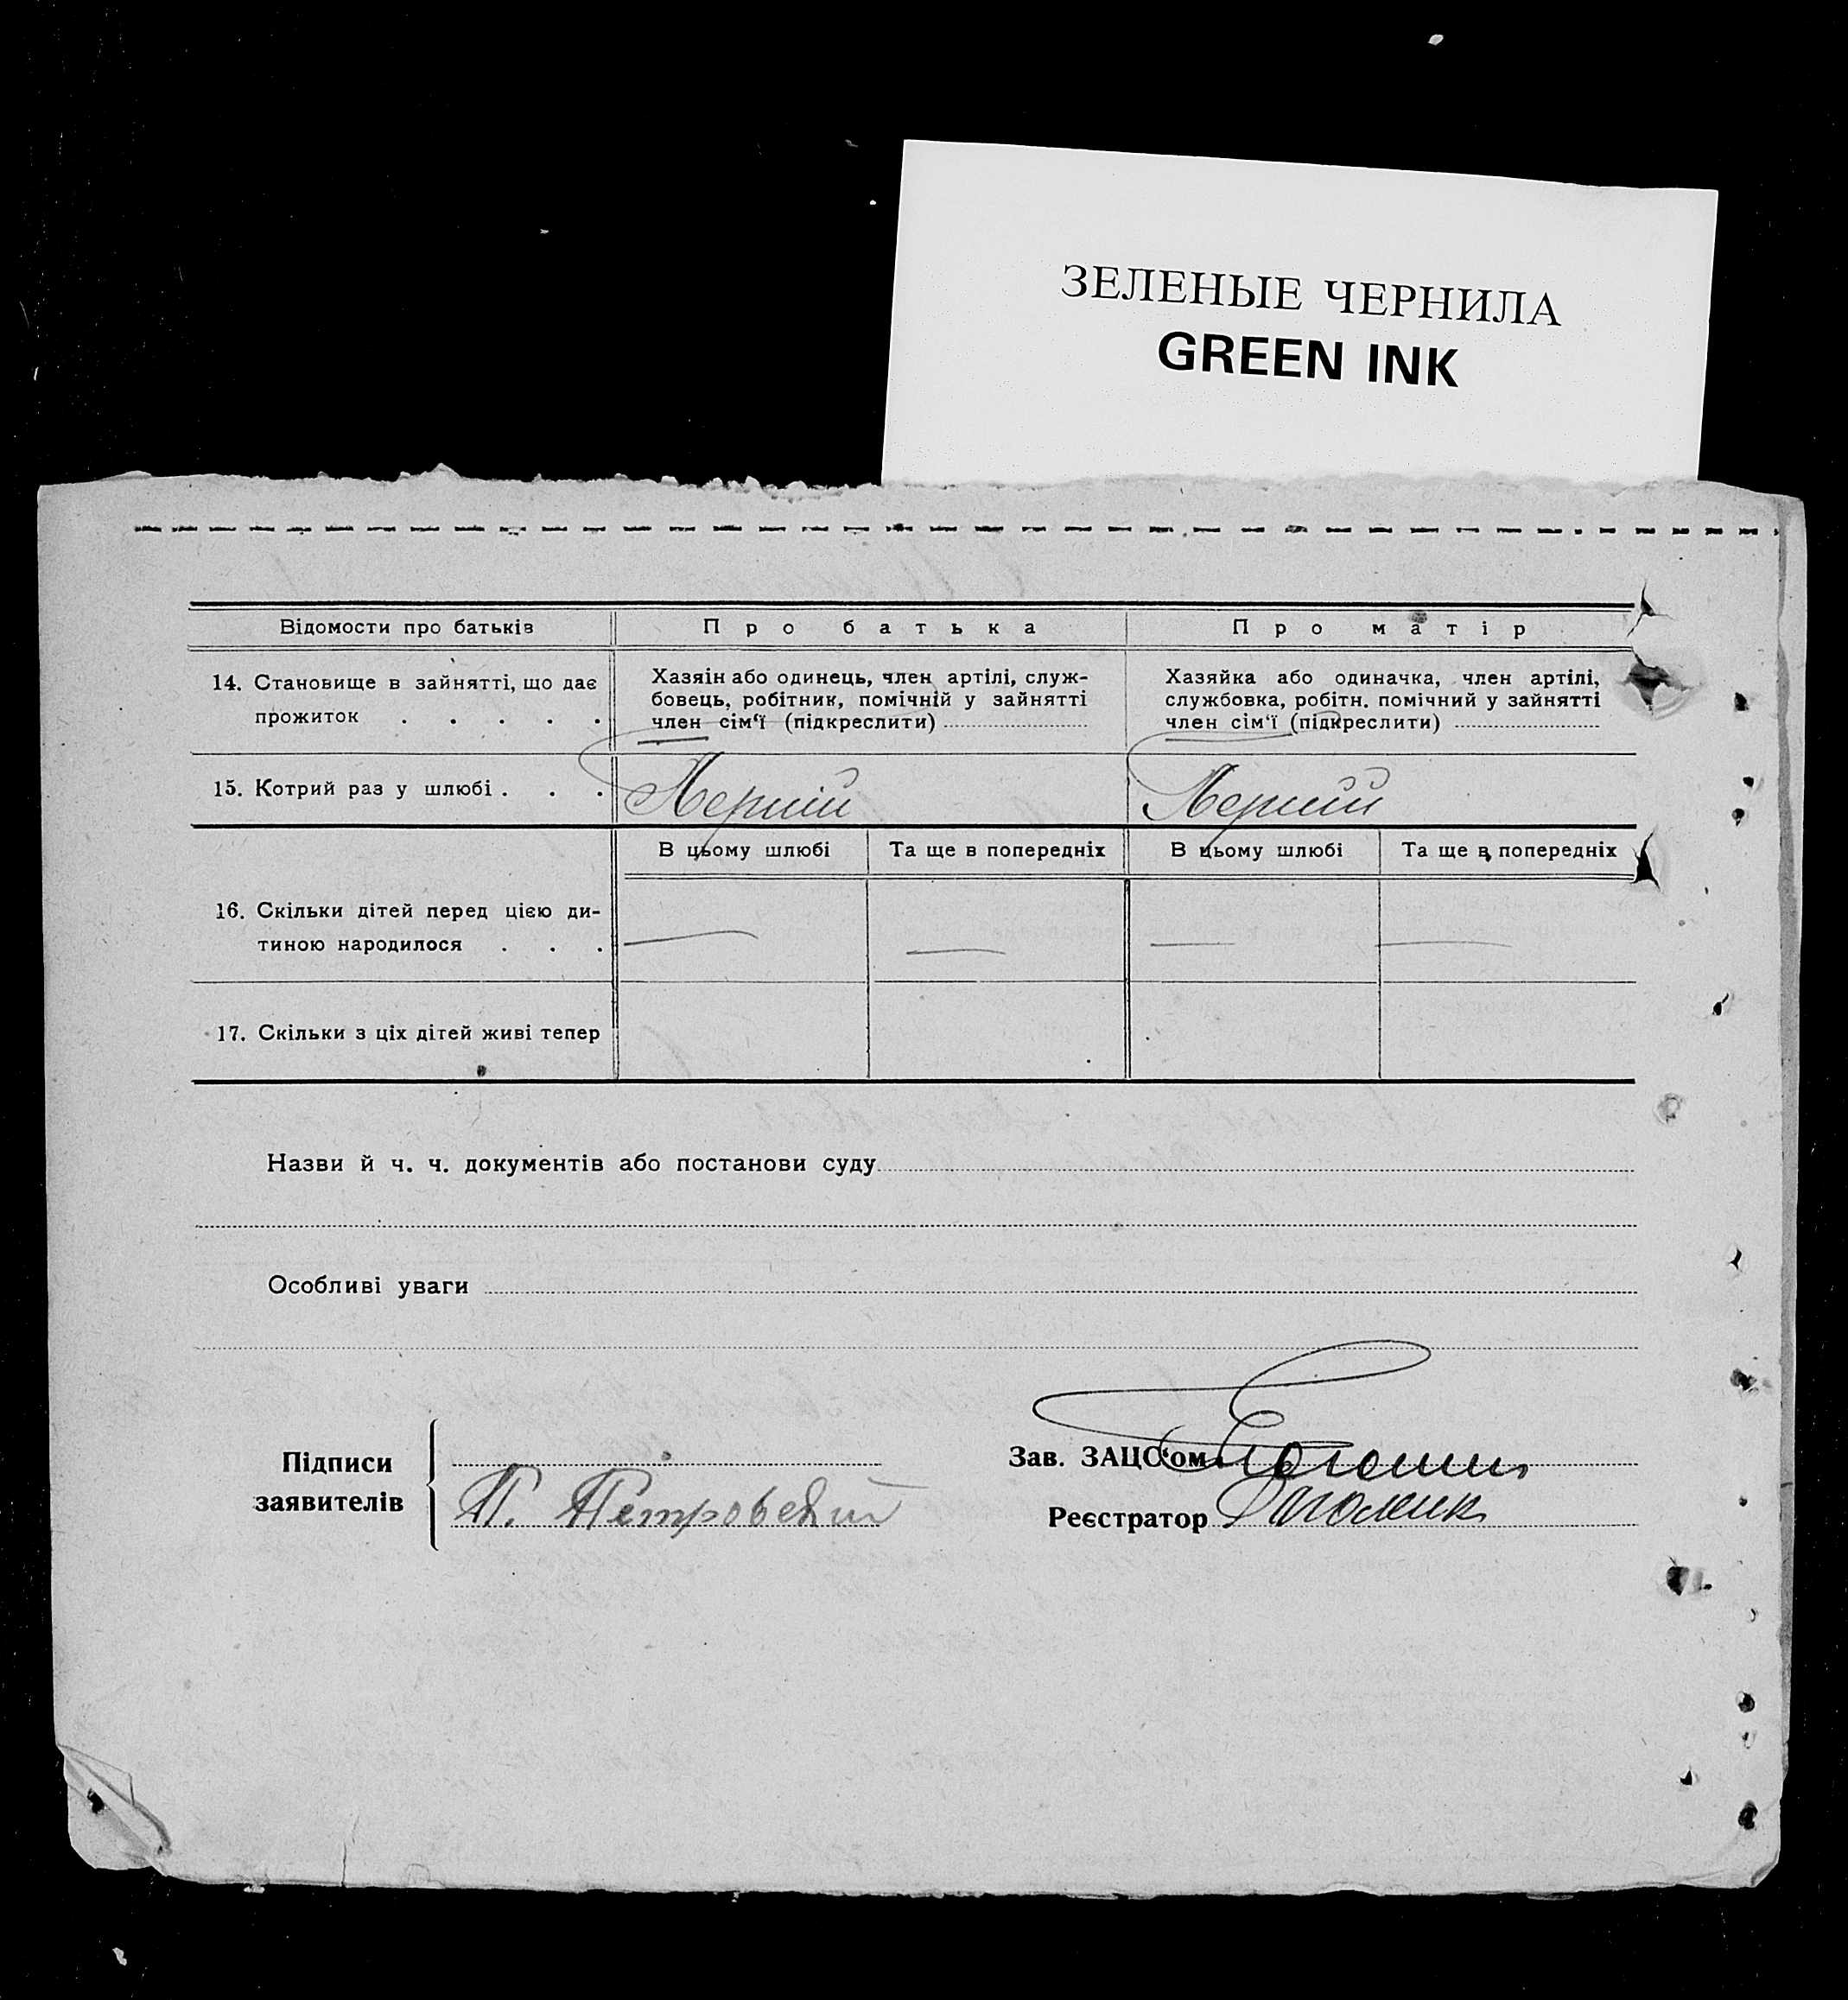 ЗЕЛЕНЫЕ ЧЕРНИЛА
GREEN INK
Відомости про батьків
Про батька
Про матір
14. Становище в зайнятті, що дає
прожиток . . . . .
Хазяін або одинець, член артілі, служ-
бовець, робітник, помічній у зайнятті
член сім'ї (підкреслити)
Хазяйка або одиначка, член артілі,
службовка, робітн. помічний у зайнятті
член сім'ї (підкреслити)
15. Котрий раз у шлюбі . . .
Перший
Перший
В цьому шлюбі
Та ще в попередніх
В цьому шлюбі
Та ще в попередніх
16. Скільки дітей перед цією ди-
тиною народилося . . .
— — — —
17. Скільки з ціх дітей живі тепер
Назви й ч. ч. документів або постанови суду
Особливі уваги
Підписи
заявителів
П. Петровский
Зав. ЗАЦС'ом
Реєстратор